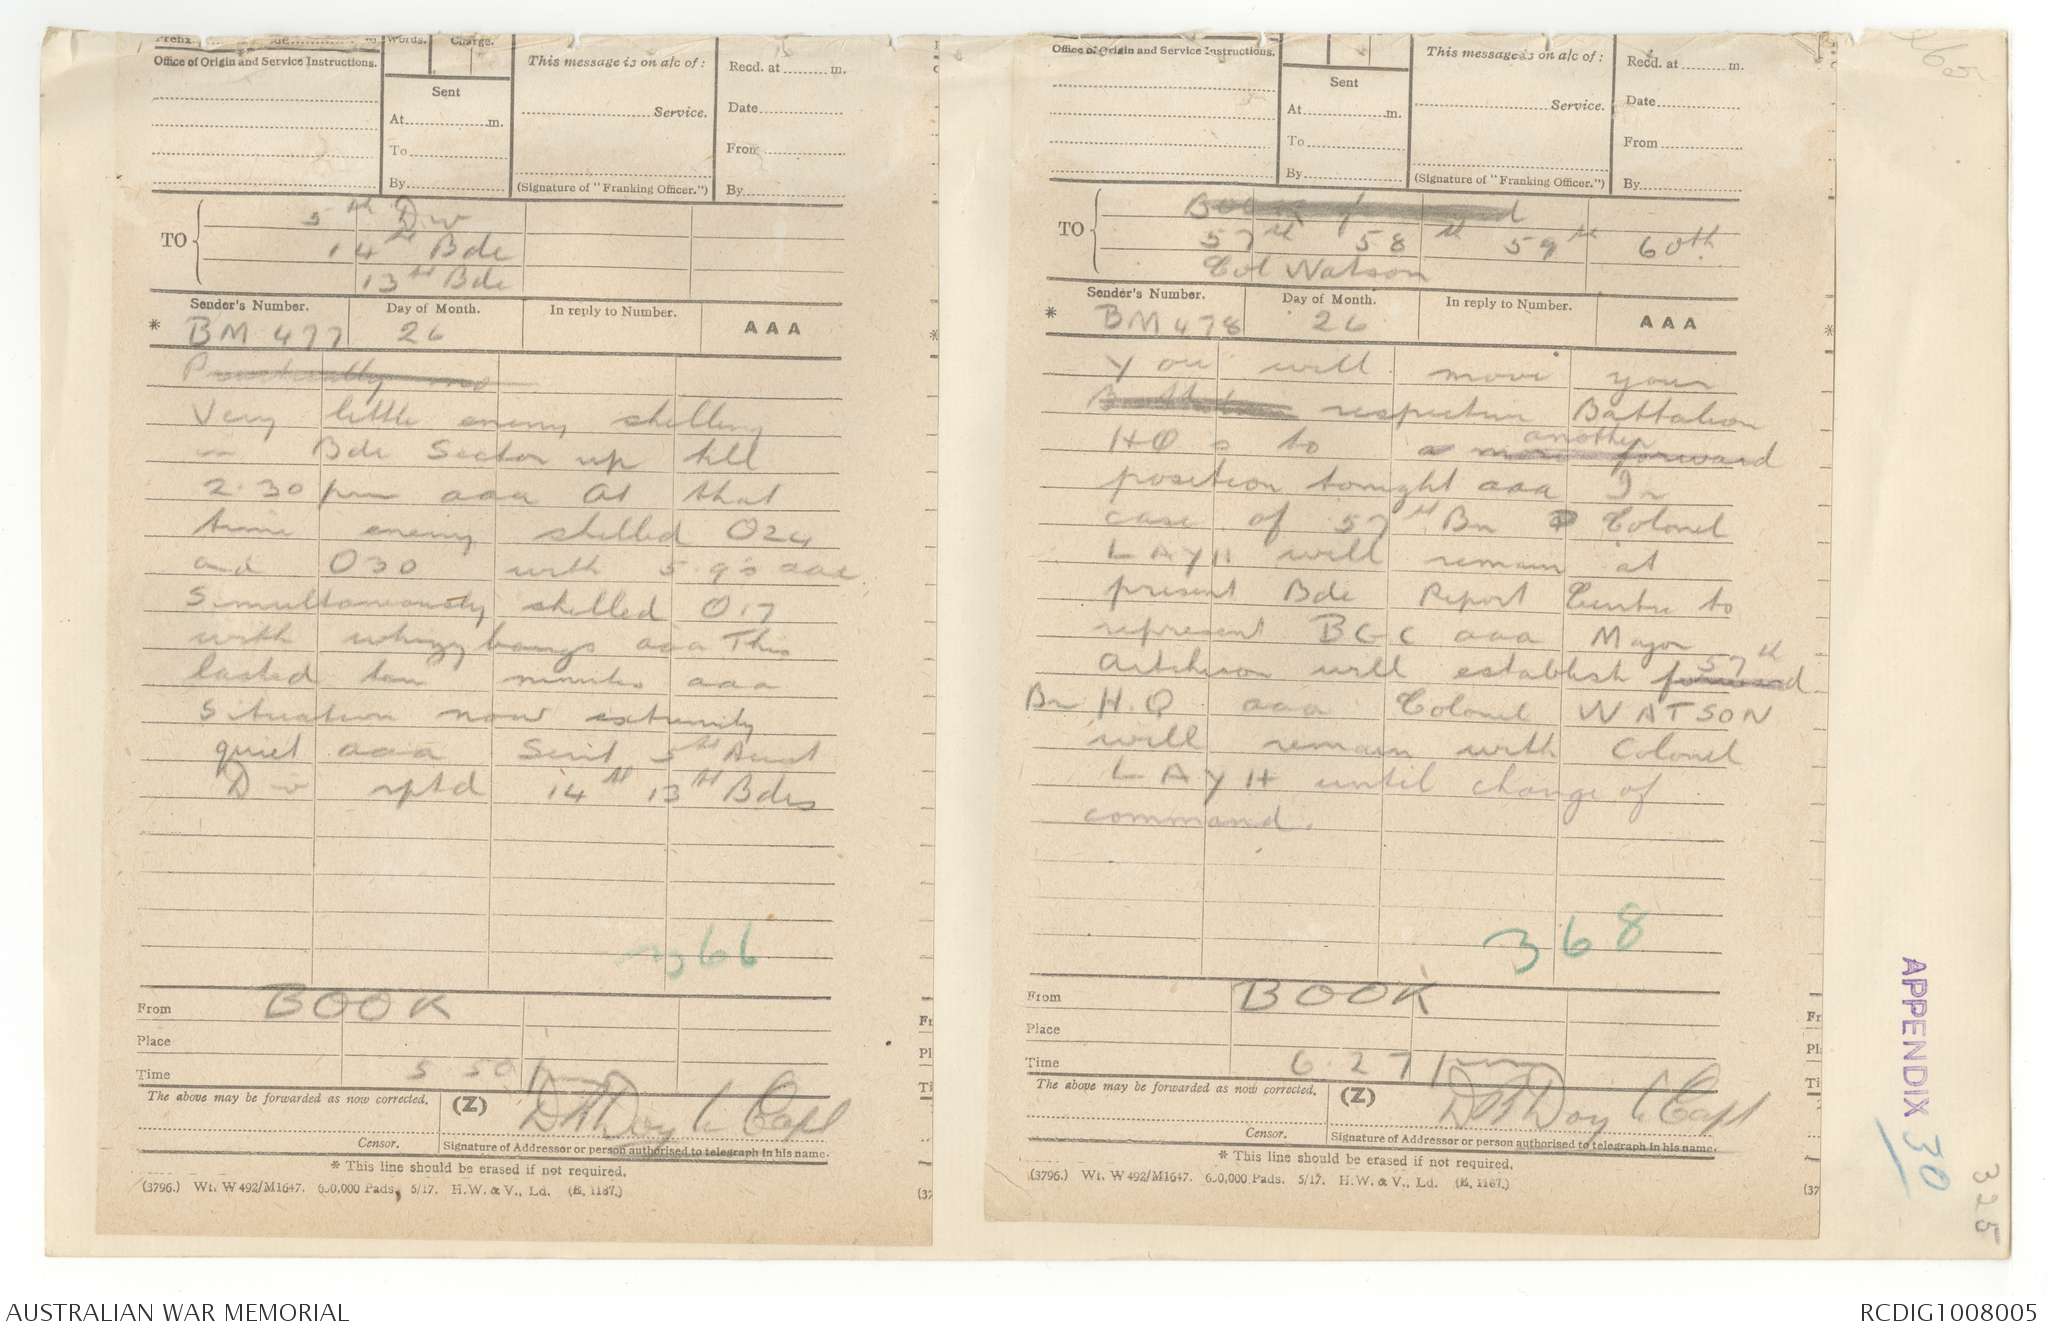 Prefix
Words.
Charge.
Office of Origin and Service Instructions.
Sent
At ........ m.
To
By
This message is on a/c of :
Service.
(Signature of "Franking Officer.")
Recd. at ........ m.
Date
From
By
TO
5th Div
14th Bde
13th Bde
Sender's Number.
Day of Month.
In reply to Number.
AAA
* BM 477
26
Practically no
Very little enemy shelling
in Bde Sector up till
2.30 pm aaa At that
time enemy shelled O24
and O30 with 5.9's aaa
Simultaneously shelled O17
with whizzbangs aaa This
lasted ten minutes aaa
Situation now extremely
quiet aaa Sent 5th Aust
Div rptd 14th 13th Bdes
366
From BOOK
Place
Time 5 50 pm
The above may be forwarded as now corrected.
(Z)
Censor.
Signature of Addressor or person authorised to telegraph in his name.
* This line should be erased if not required.
(3796.) Wt. W 492/M1647. 600,000 Pads. 5/17. H.W. & V., Ld. (E. 1187.)
Office of Origin and Service Instructions.
Sent
At ........ m.
To
By
This message is on a/c of :
Service.
(Signature of "Franking Officer.")
Recd. at ........ m.
Date
From
By
TO
57th 58th 59th 60th
Col Watson
Sender's Number.
Day of Month.
In reply to Number.
AAA
* BM 478
26
You will move your
Battalion respective Battalion
HQs to a more forward another
position tonight aaa In
case of 57th Bn Colonel
LAYH will remain at
present Bde Report Centre to
represent BGC aaa Major
Aitchison will establish forward 57th
Bn H.Q aaa Colonel WATSON
will remain with Colonel
LAYH until change of
command.
368
From BOOK
Place
Time 6.27 pm
The above may be forwarded as now corrected.
(Z)
Capt
Censor.
Signature of Addressor or person authorised to telegraph in his name.
* This line should be erased if not required.
(3796.) Wt. W 492/M1647. 600,000 Pads. 5/17. H.W. & V., Ld. (E. 1187.)
APPENDIX 30
325
AUSTRALIAN WAR MEMORIAL
RCDIG1008005